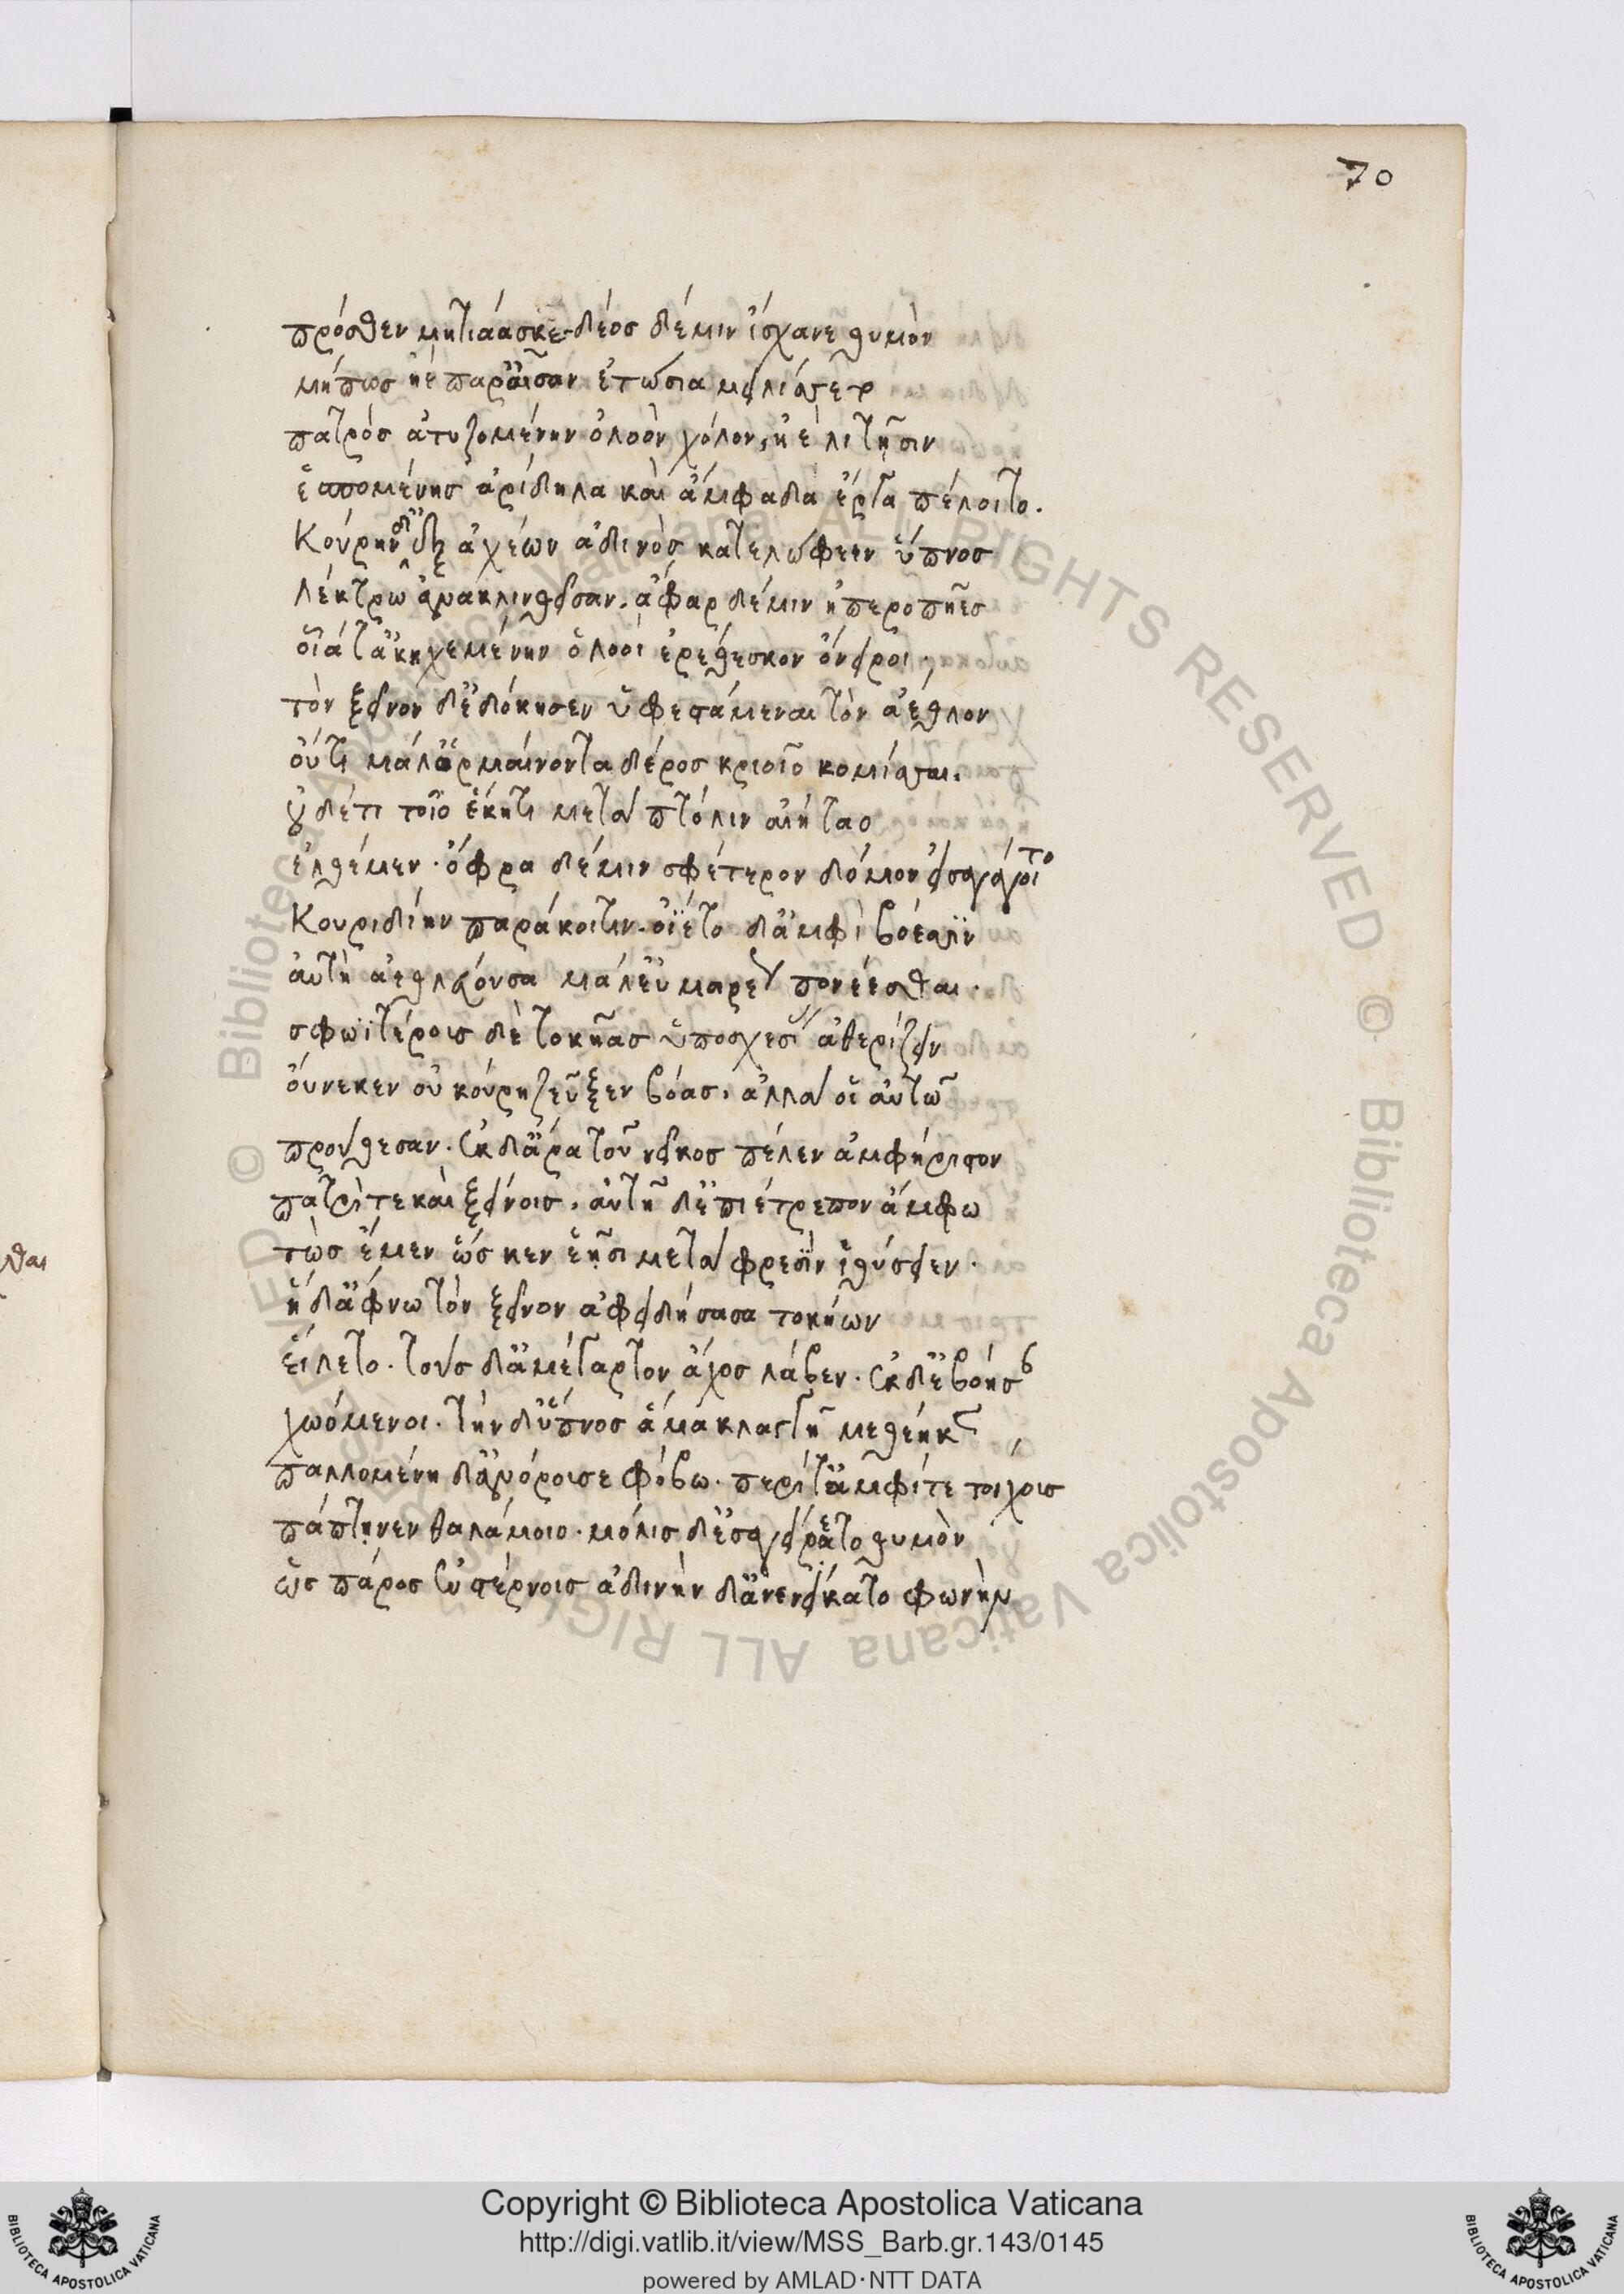 70
πρόσθεν μητιάασκε. δέος δέ μιν ἴσχανε θυμὸν
μήπως ἠὲ παρ' αἶσαν ἐτώσια μειλίξειεν
πατρὸς ἀτυζομένην ὀλοὸν χόλον, ἠὲ λιτῇσιν
ἑσπομένης ἀρίδηλα καὶ ἀμφαδὰ ἔργα πέλοιτο.
Κούρην δ' ἐξ ἀχέων ἀδινὸς κατελώφεεν ὕπνος
λέκτρω ἀνακλινθεῖσαν. ἄφαρ δέ μιν ἠπεροπῆες
οἷά τ' ἀκηχεμένην ὀλοοὶ ἐρέθεσκον ὄνειροι.
τὸν ξεῖνον δ' ἐδόκησεν ὑφεστάμεναι τὸν ἄεθλον
οὔτι μάλ' ὁρμαίνοντα δέρος κριοῖο κομίσσαι.
οὐδέ τι τοῖο ἕκητι μετὰ πτόλιν αἰήταο
ἐλθέμεν. ὄφρα δέ μιν σφέτερον δόμον εἰσαγάγοιτο
Κουριδίην παράκοιτιν. ὀΐετο δ' ἀμφὶ βόεσσιν
αὐτὴ ἀεθλεύουσα μάλ' εὐμαρέως πονέεσθαι.
σφωϊτέρους δὲ τοκῆας ὑποσχεσίης ἀθερίζειν
οὕνεκεν οὐ κούρη ζεῦξεν βόας, ἀλλὰ οἷ αὐτῶ
προύθεσαν. ἐκ δ' ἄρα τοῦ νεῖκος πέλεν ἀμφήριστον
πατρί τε καὶ ξείνοις. αὐτῇ δ' ἐπιέτρεπον ἄμφω
τὼς ἔμεν ὥς κεν ἑῇσι μετὰ φρεσὶν ἰθύσειεν.
ἡ δ' ἄφνω τὸν ξεῖνον ἀφειδήσασα τοκήων
εἵλετο. τοὺς δ' ἀμέγαρτον ἄχος λάβεν. ἐκ δ' ἐβόησαν
χωόμενοι. τὴν δ' ὕπνος ἅμα κλαγγῇ μεθέηκεν
παλλομένη δ' ἀνόρουσε φόβω. περί τ' ἀμφί τε τοίχους
πάπτηνεν θαλάμοιο. μόλις δ' ἐσαγείρετο θυμὸν
ὡς πάρος ἐν στέρνοις ἀδινὴν δ' ἀνενείκατο φωνὴν
θαι
Copyright © Biblioteca Apostolica Vaticana
http://digi.vatlib.it/view/MSS_Barb.gr.143/0145
powered by AMLAD·NTT DATA